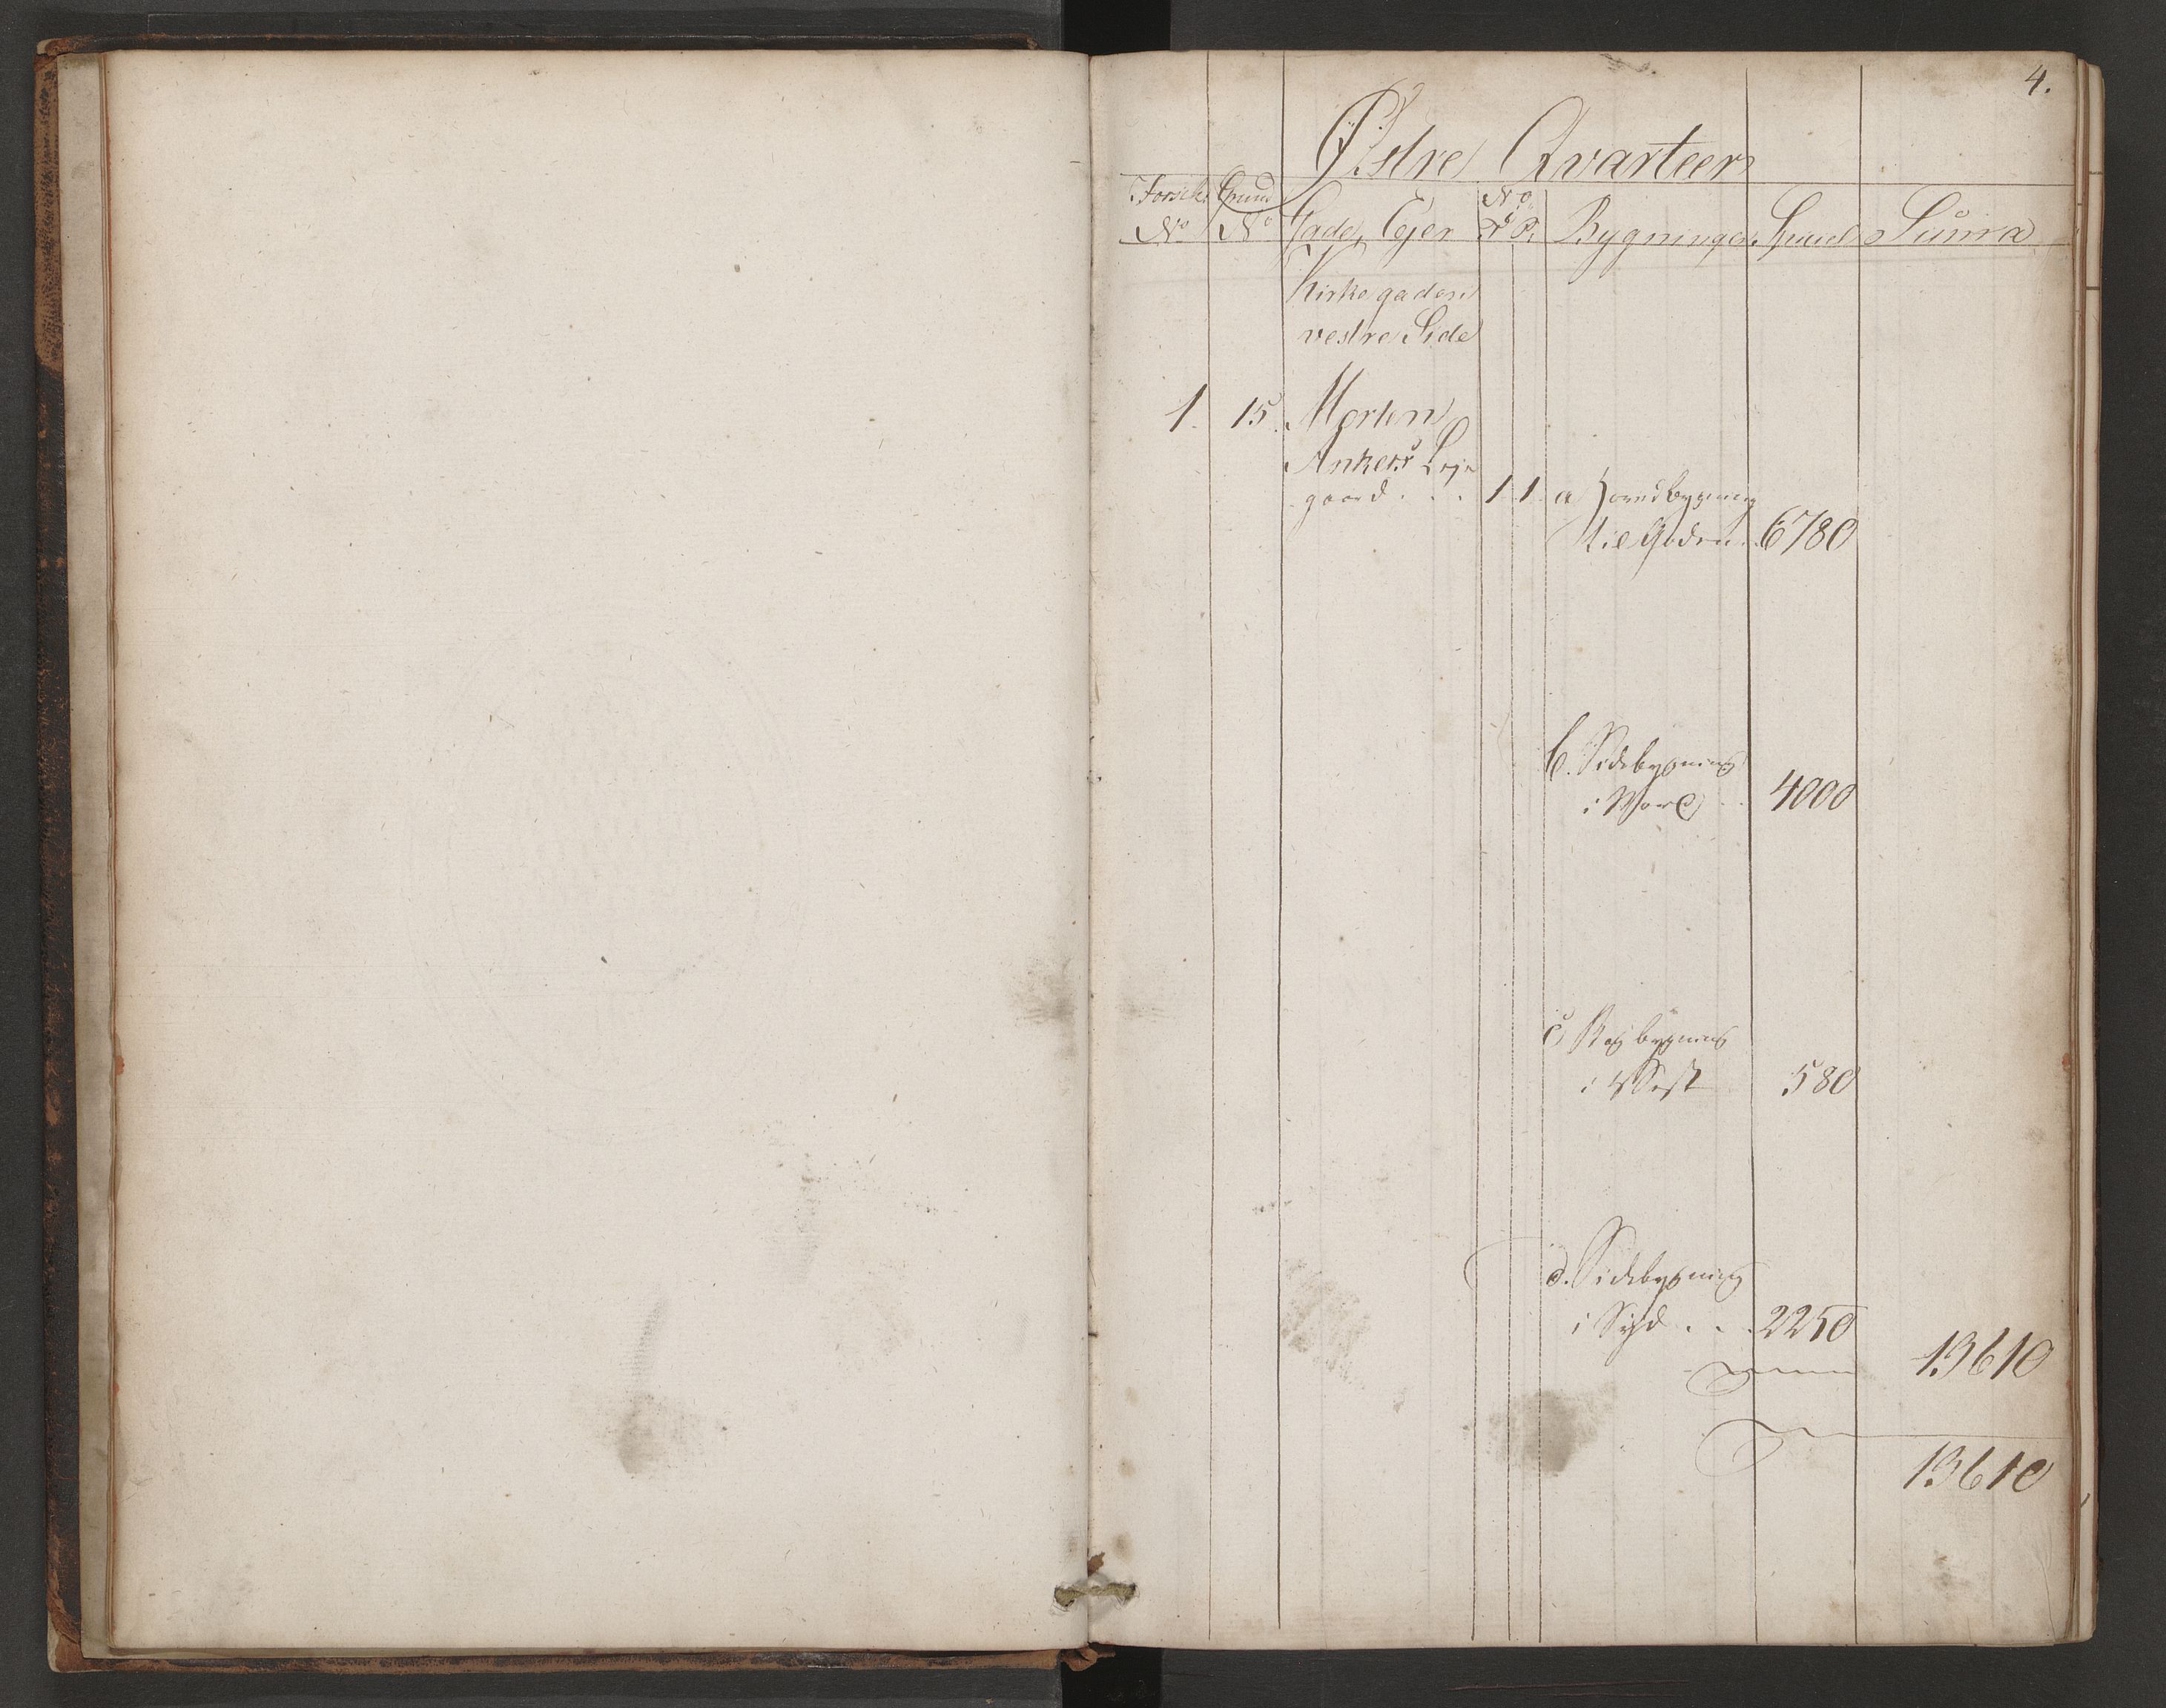 4.
Østre Qvarteer
Forsik: Grund No
No No Gade, Ejer Bygninger Summa
Kirkegadens
vestre Side
1. 15. Morten
Ankers Leje
gaard . . . 1 1 a Hovedbygning
til Gaden . . 6780
b. Sidebygning
i Nord . . 4000
c Bagbygning
i Vest 580
d. Sidebygning
i Syd . . . 2250 13610
13610